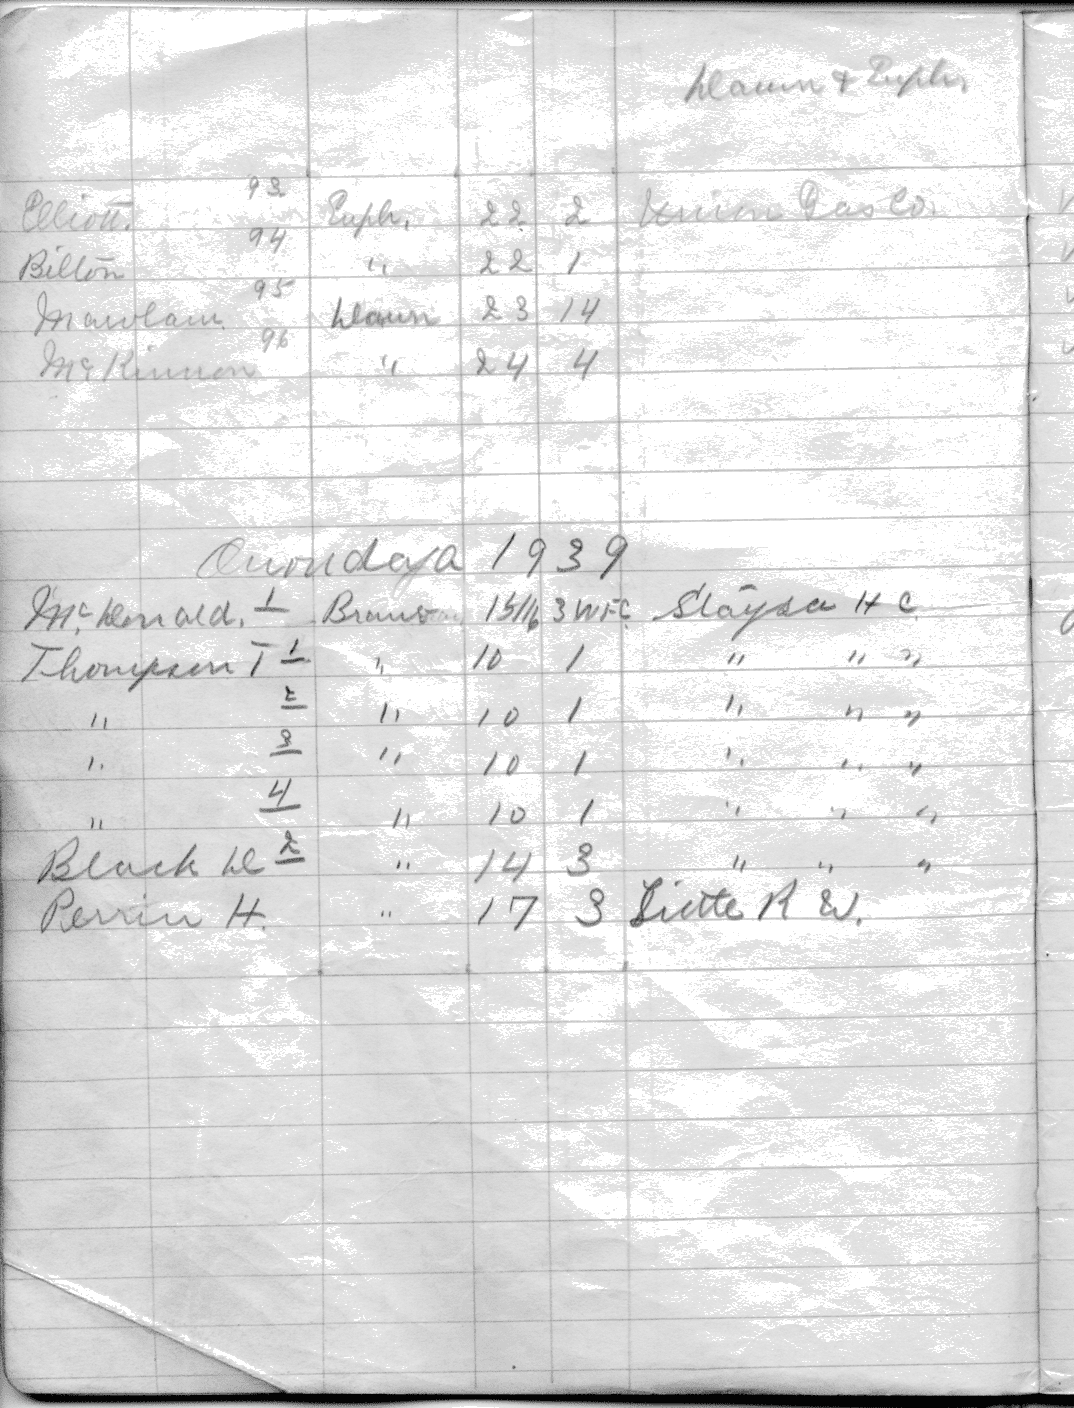 Dawn & Euph.
Elliott. 93 Euph. 22 2 Union Gas Co.
Bilton 94 " 22 1
95 Dawn 23 14
McKinnon 96 " 24 4
Onondaga 1939
McDonald. 1 15/16 3 W.F.C. H C
Thompson T 1 " 10 1 " " "
" 2 " 10 1 " " "
" 3 " 10 1 " " "
" 4 " 10 1 " " "
Black D 2 " 14 3 " " "
Perrin H. " 17 3 R W.